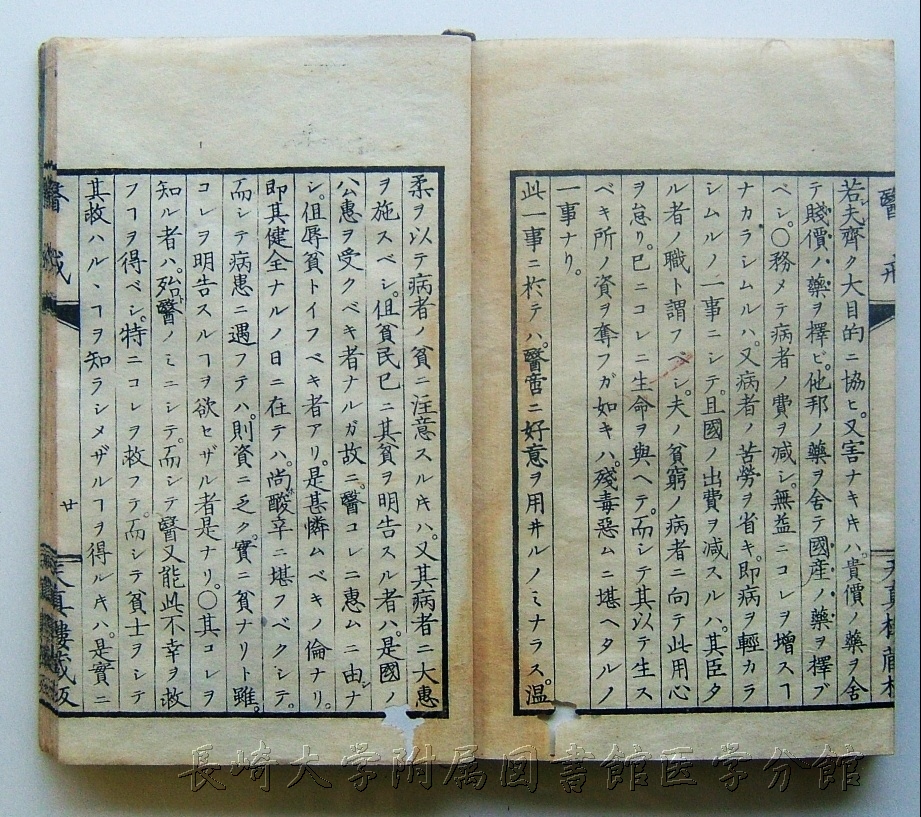 醫戒
若夫齊ク大目的ニ協ヒ。又害ナキ𪜈ハ。貴價ノ藥ヲ舍
テ賤價ノ藥ヲ擇ビ。他邦ノ藥ヲ舍テ國産ノ藥ヲ擇ブ
ベシ。〇務メテ病者ノ費ヲ减シ。無益ニコレヲ増スヿ
ナカラシムルハ。又病者ノ苦勞ヲ省キ。即病ヲ輕カラ
シムルノ一事ニシテ。且國ノ出費ヲ减スルハ。其臣タ
ル者ノ職ト謂フベシ。夫ノ貧窮ノ病者ニ向テ此用心
ヲ怠リ。已ニコレニ生命ヲ與ヘテ。而シテ其以テ生ス
ベキ所ノ資ヲ奪フガ如キハ。殘毒惡ムニ堪ヘタルノ
一事ナリ。
此一事ニ於テハ。醫啻ニ好意ヲ用井ルノミナラス。温
柔ヲ以テ病者ノ貧ニ注意スル𪜈ハ。又其病者ニ大惠
ヲ施スベシ。但貧民已ニ其貧ヲ明告スル者ハ。是國ノ
公惠ヲ受クベキ者ナルガ故ニ。醫コレニ惠ムニ由ナ
シ。但辱貧トイフベキ者アリ。是甚憐ムベキノ倫ナリ。
即其健全ナルノ日ニ在テハ。尚酸辛ニ堪フベクシテ。
而シテ病患ニ遇フテハ。則資ニ乏ク。實ニ貧ナリト雖。
コレヲ明告スルヿヲ欲セザル者是ナリ。〇其コレヲ
知ル者ハ。殆醫ノミニシテ。而シテ醫又能此不幸ヲ救
フヿヲ得ベシ。特ニコレヲ救フテ。而シテ貧士ヲシテ
其救ハルヽヿヲ知ラシメザルヿヲ得ル𪜈ハ。是實ニ
醫戒
廿
天真樓蔵板
長崎大学附属図書館医学分館